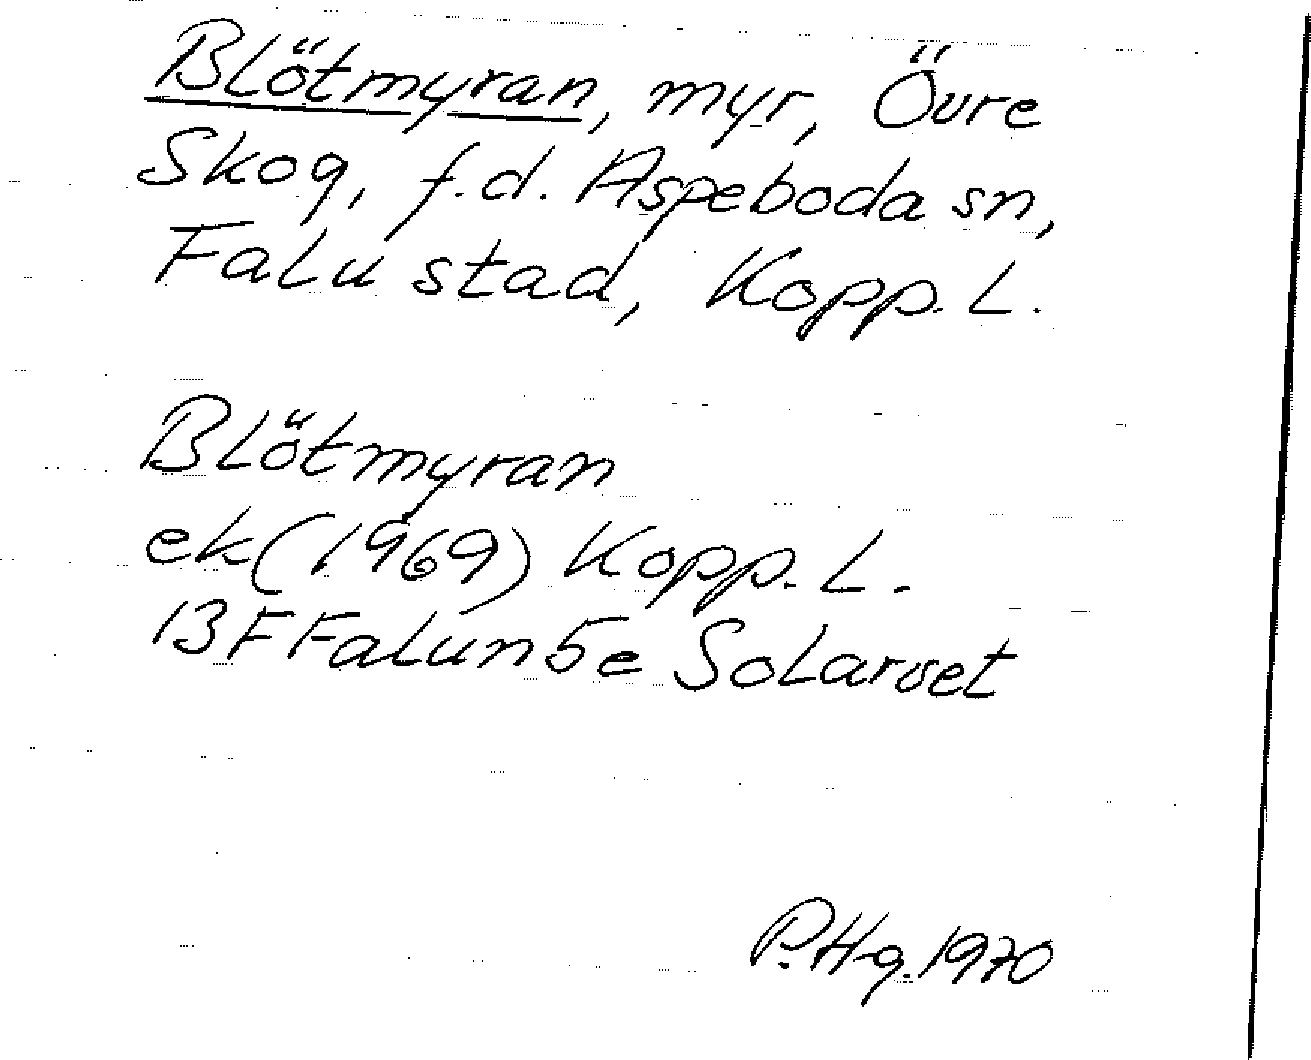 Blötmyran, myr, Övre
Skog, f.d. Aspeboda sn,
Falu stad, Kopp. L.
Blötmyran
ek (1969) Kopp. L.
13F Falun 5e Solarvet
P. Hg. 1970